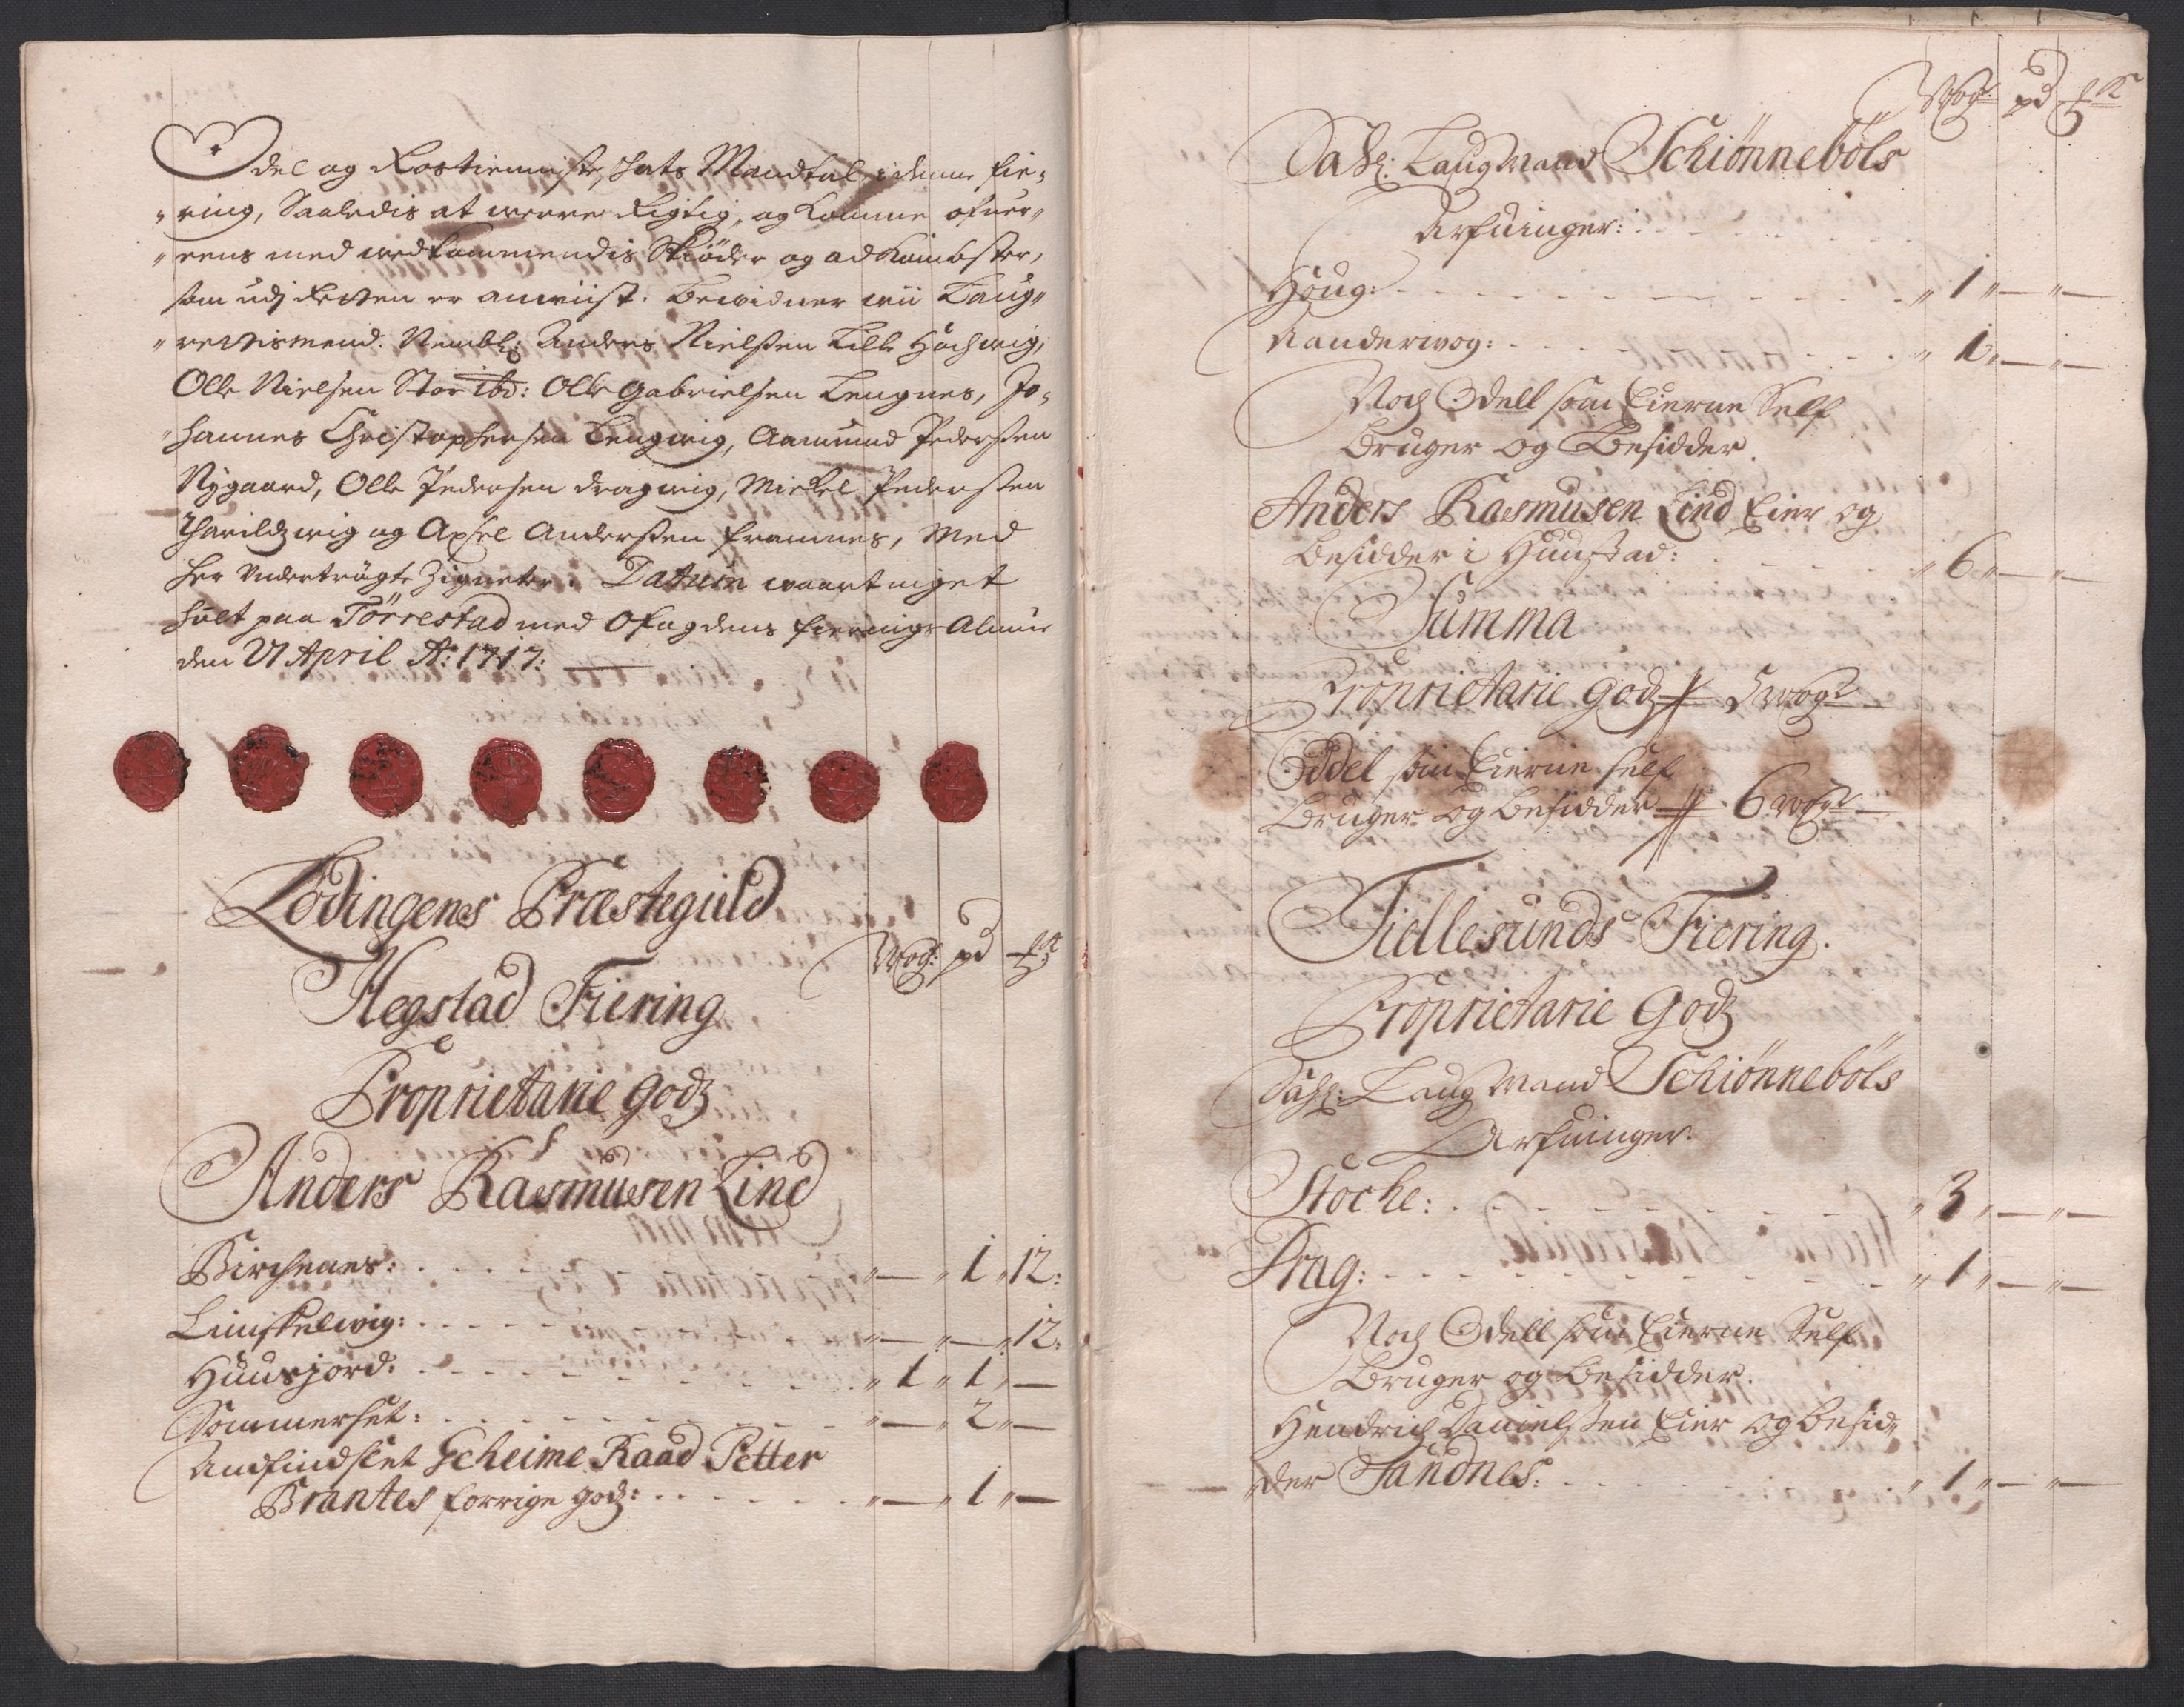 Odel og Rostienniste, Jats Mandtal i denne fie-
"ring, Saaledis at werre Rigtig, og komme ofuer"
"eens med wedkommendis Skiøder og adkombster,
som udj Retten er anwiist. Bewidner wii Laug"
"rettismend. Nembl: Anders Nielsen Lille Hochwig,
Olle Nielsen Stor ibd: Olle Gabrielsen Lengnes, Jo-
"hannes Christophersen Lengwig, Aamund Pedersen
Nygaard, Olle Pedersen dragwig, Mickel Pedersen
Tharildzwig og Axsel Andersen framnes, Med
her undertrögte Zigneter. Datum waartinget
holt paa Törrestad med Ofogdens fierings Almue
den 21 April Ao: 1717:
Lödingens Præstegield
Wog: pd ℔
Hegstad Fiering
Proprietarie godz
Anders Rasmusen Lind
Birchenes: . . . " — " 1 " 12:
Limstelwig: . . . " — " — " 12:
Huusjord: . . . " 1 " 1 " —
Sommerset: . . . " — " 2 " —
Andfindslet Gcheime Raad Petter
Brantes forrige godz: . . . " — " 1 " —
Wog: pd ℔
Sahl: Laugmand Schiönneböls
Arfuinger:
Houg: . . . " 1 " — " —
Aanderwog: . . . " 1 " — " —
Noch Odell som Eierne Self
Bruger og Besidder.
Anders Rasmusen Lind Eier og
Besidder i Huustad: . . . " 6 " — " —
Summa
Proprietarie godz 5 wog:
Oddel som Eierne self
Bruger og besidder 6 wog:
Tiellesunds Fiering.
Proprietarie Godz
Sahl: Laugmand Schiönneböls
Arfuinger.
Stoche: . . . " 3 " — " —
Drag: . . . " 1 " — " —
Noch Odell som Eierne Self
Bruger og besidder.
Hendrich Danielsen Eier og besid"
"der Sandnes: . . . " 1 " — " —